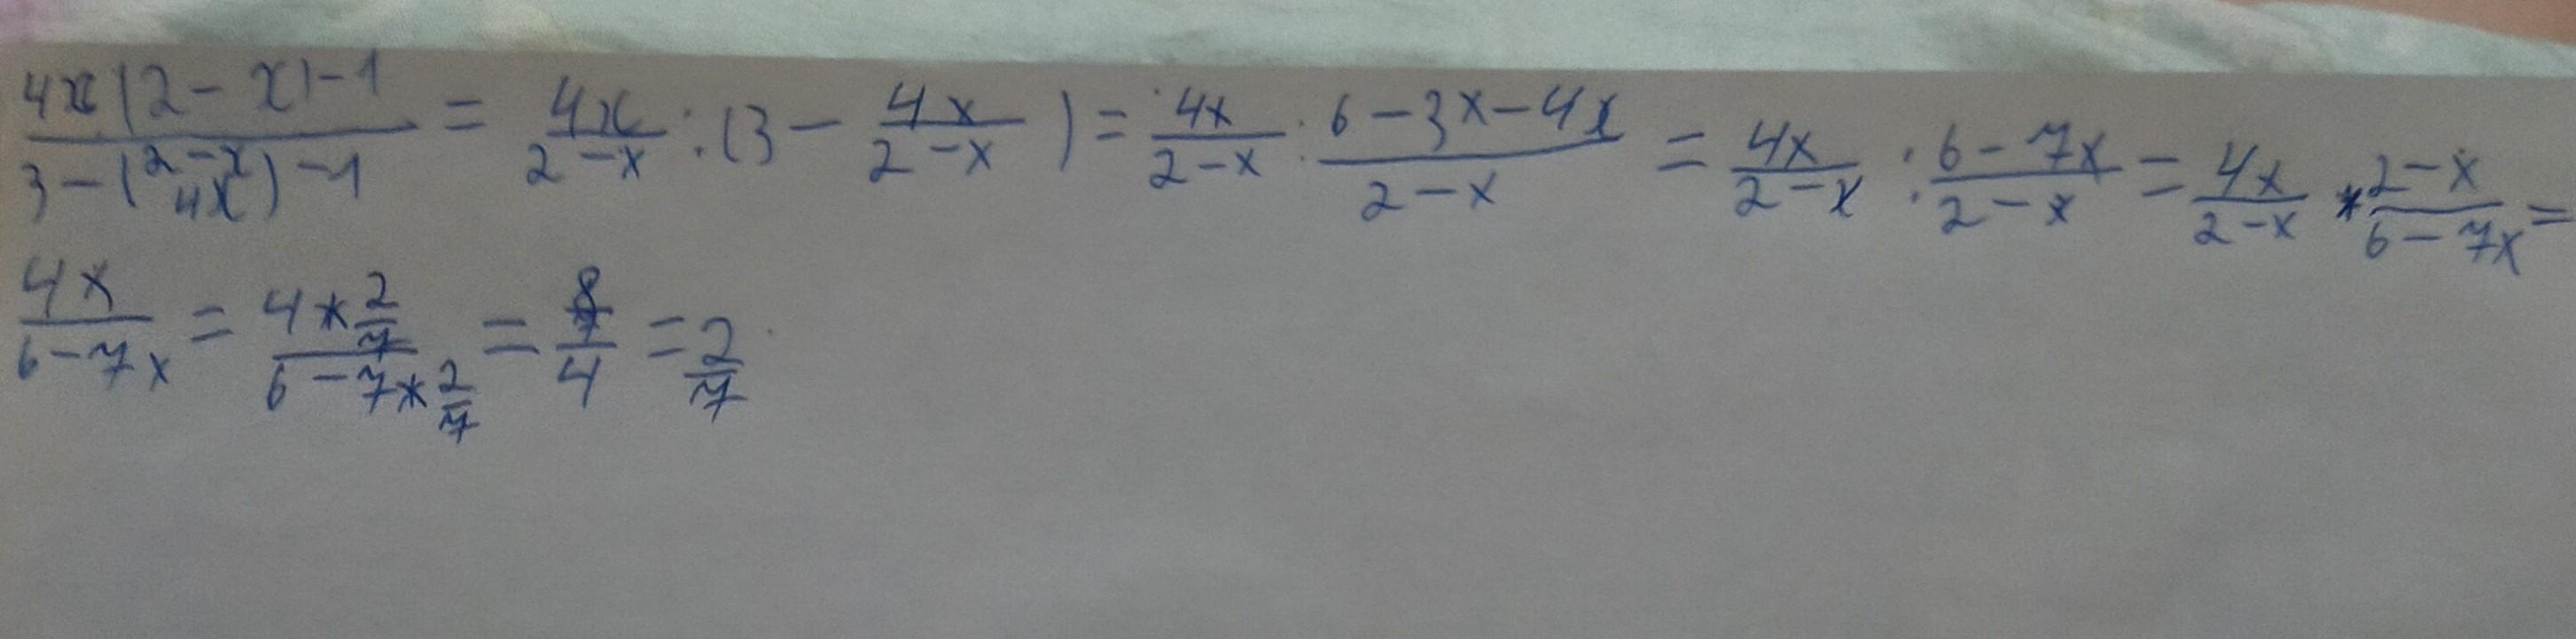 \frac{4x(2-x)-1}{3-(\frac{2-x}{4x})-1} = \frac{4x}{2-x} : (3 - \frac{4x}{2-x}) = \frac{4x}{2-x} : \frac{6-3x-4x}{2-x} = \frac{4x}{2-x} : \frac{6-7x}{2-x} = \frac{4x}{2-x} * \frac{2-x}{6-7x} =
\frac{4x}{6-7x} = \frac{4*\frac{2}{7}}{6-7*\frac{2}{7}} = \frac{\frac{8}{7}}{4} = \frac{2}{7}